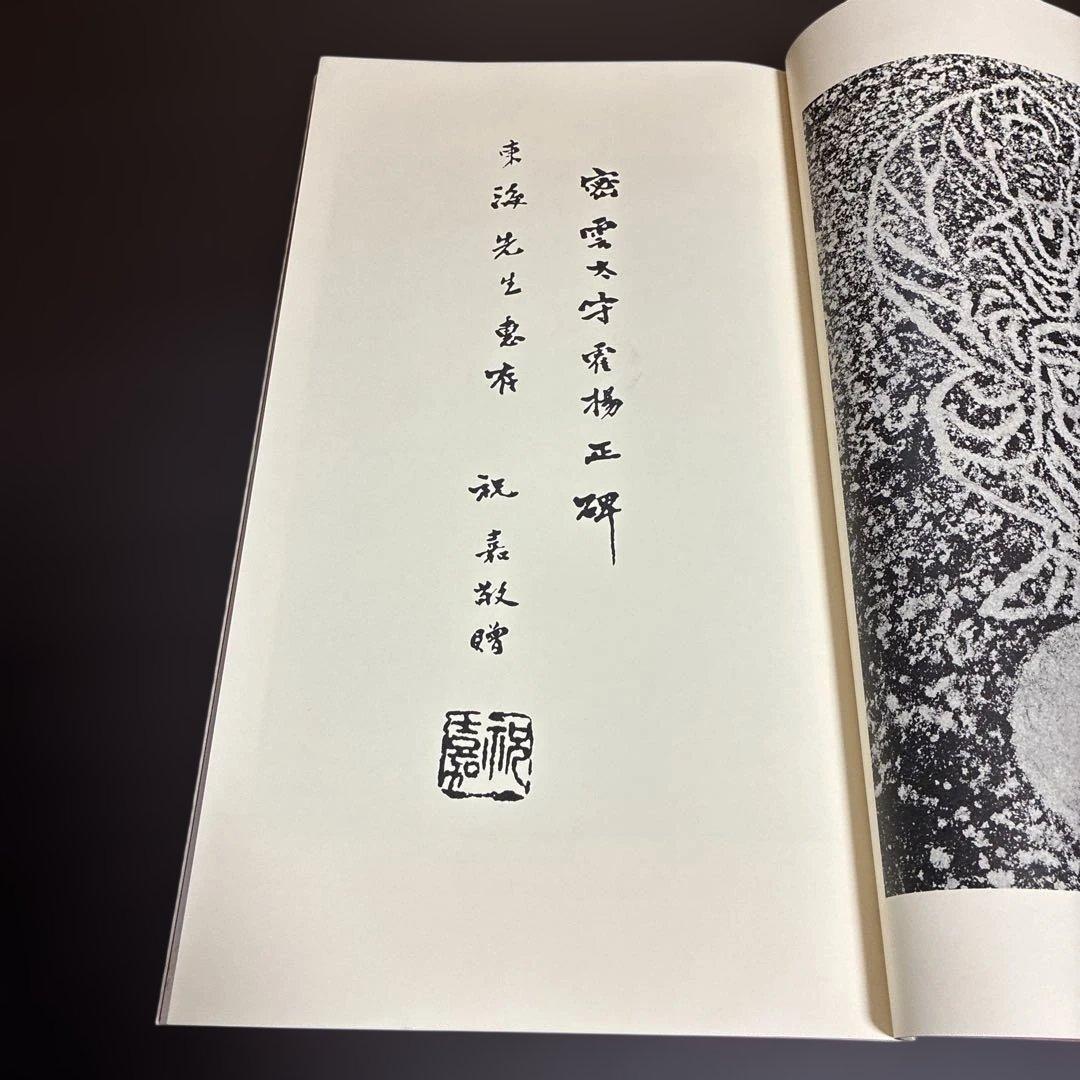 密雲太守霍揚正碑
東海先生惠存
祝嘉敬贈
祝嘉